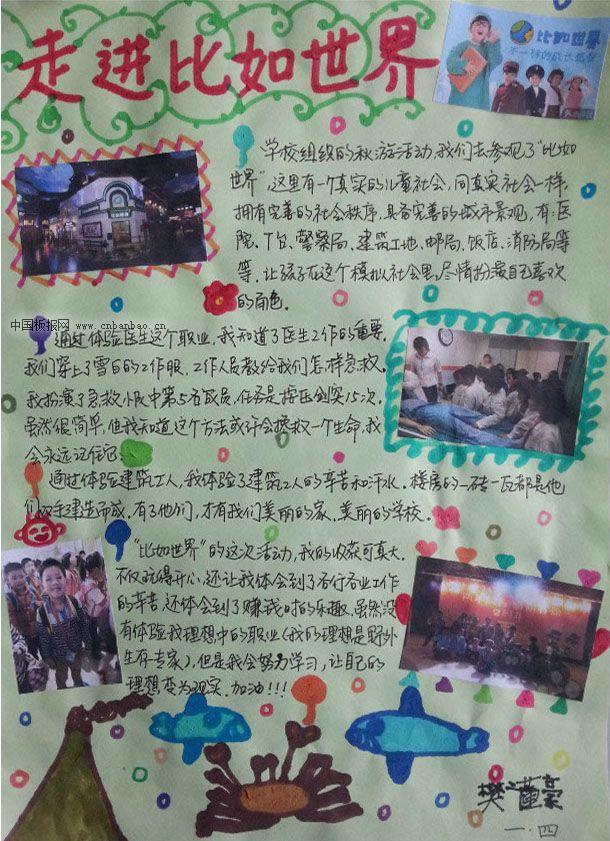 走进比如世界
比如世界
不一样的成长故事
学校组织的秋游活动,我们去参观了"比如
世界",这里有一个真实的儿童社会,同真实社会一样,
拥有完善的社会秩序,具备完善的城市景观,有:医
院、T台、警察局、建筑工地、邮局、饭店、消防局等
等。让孩子在这个模拟社会里,尽情扮演自己喜欢
的角色。
中国板报网 www.cnbanbao.cn
通过体验医生这个职业,我知道了医生工作的重要。
我们穿上了雪白的工作服,工作人员教给我们怎样急救。
我扮演了急救小队中第5名成员,任务是按压剑突15次,
虽然很简单,但我知道这个方法或许会拯救一个生命,我
会永远记住它。
通过体验建筑工人,我体验了建筑工人的辛苦和汗水。楼房的一砖一瓦都是他
们双手建造而成,有了他们,才有我们美丽的家、美丽的学校。
"比如世界"的这次活动,我的收获可真大。
不仅玩得开心,还让我体会到了各行各业工作
的辛苦,还体会到了赚钱时的乐趣,虽然没
有体验我理想中的职业(我的理想是野外
生存专家),但是我会努力学习,让自己的
理想变为现实,加油!!!
一·四